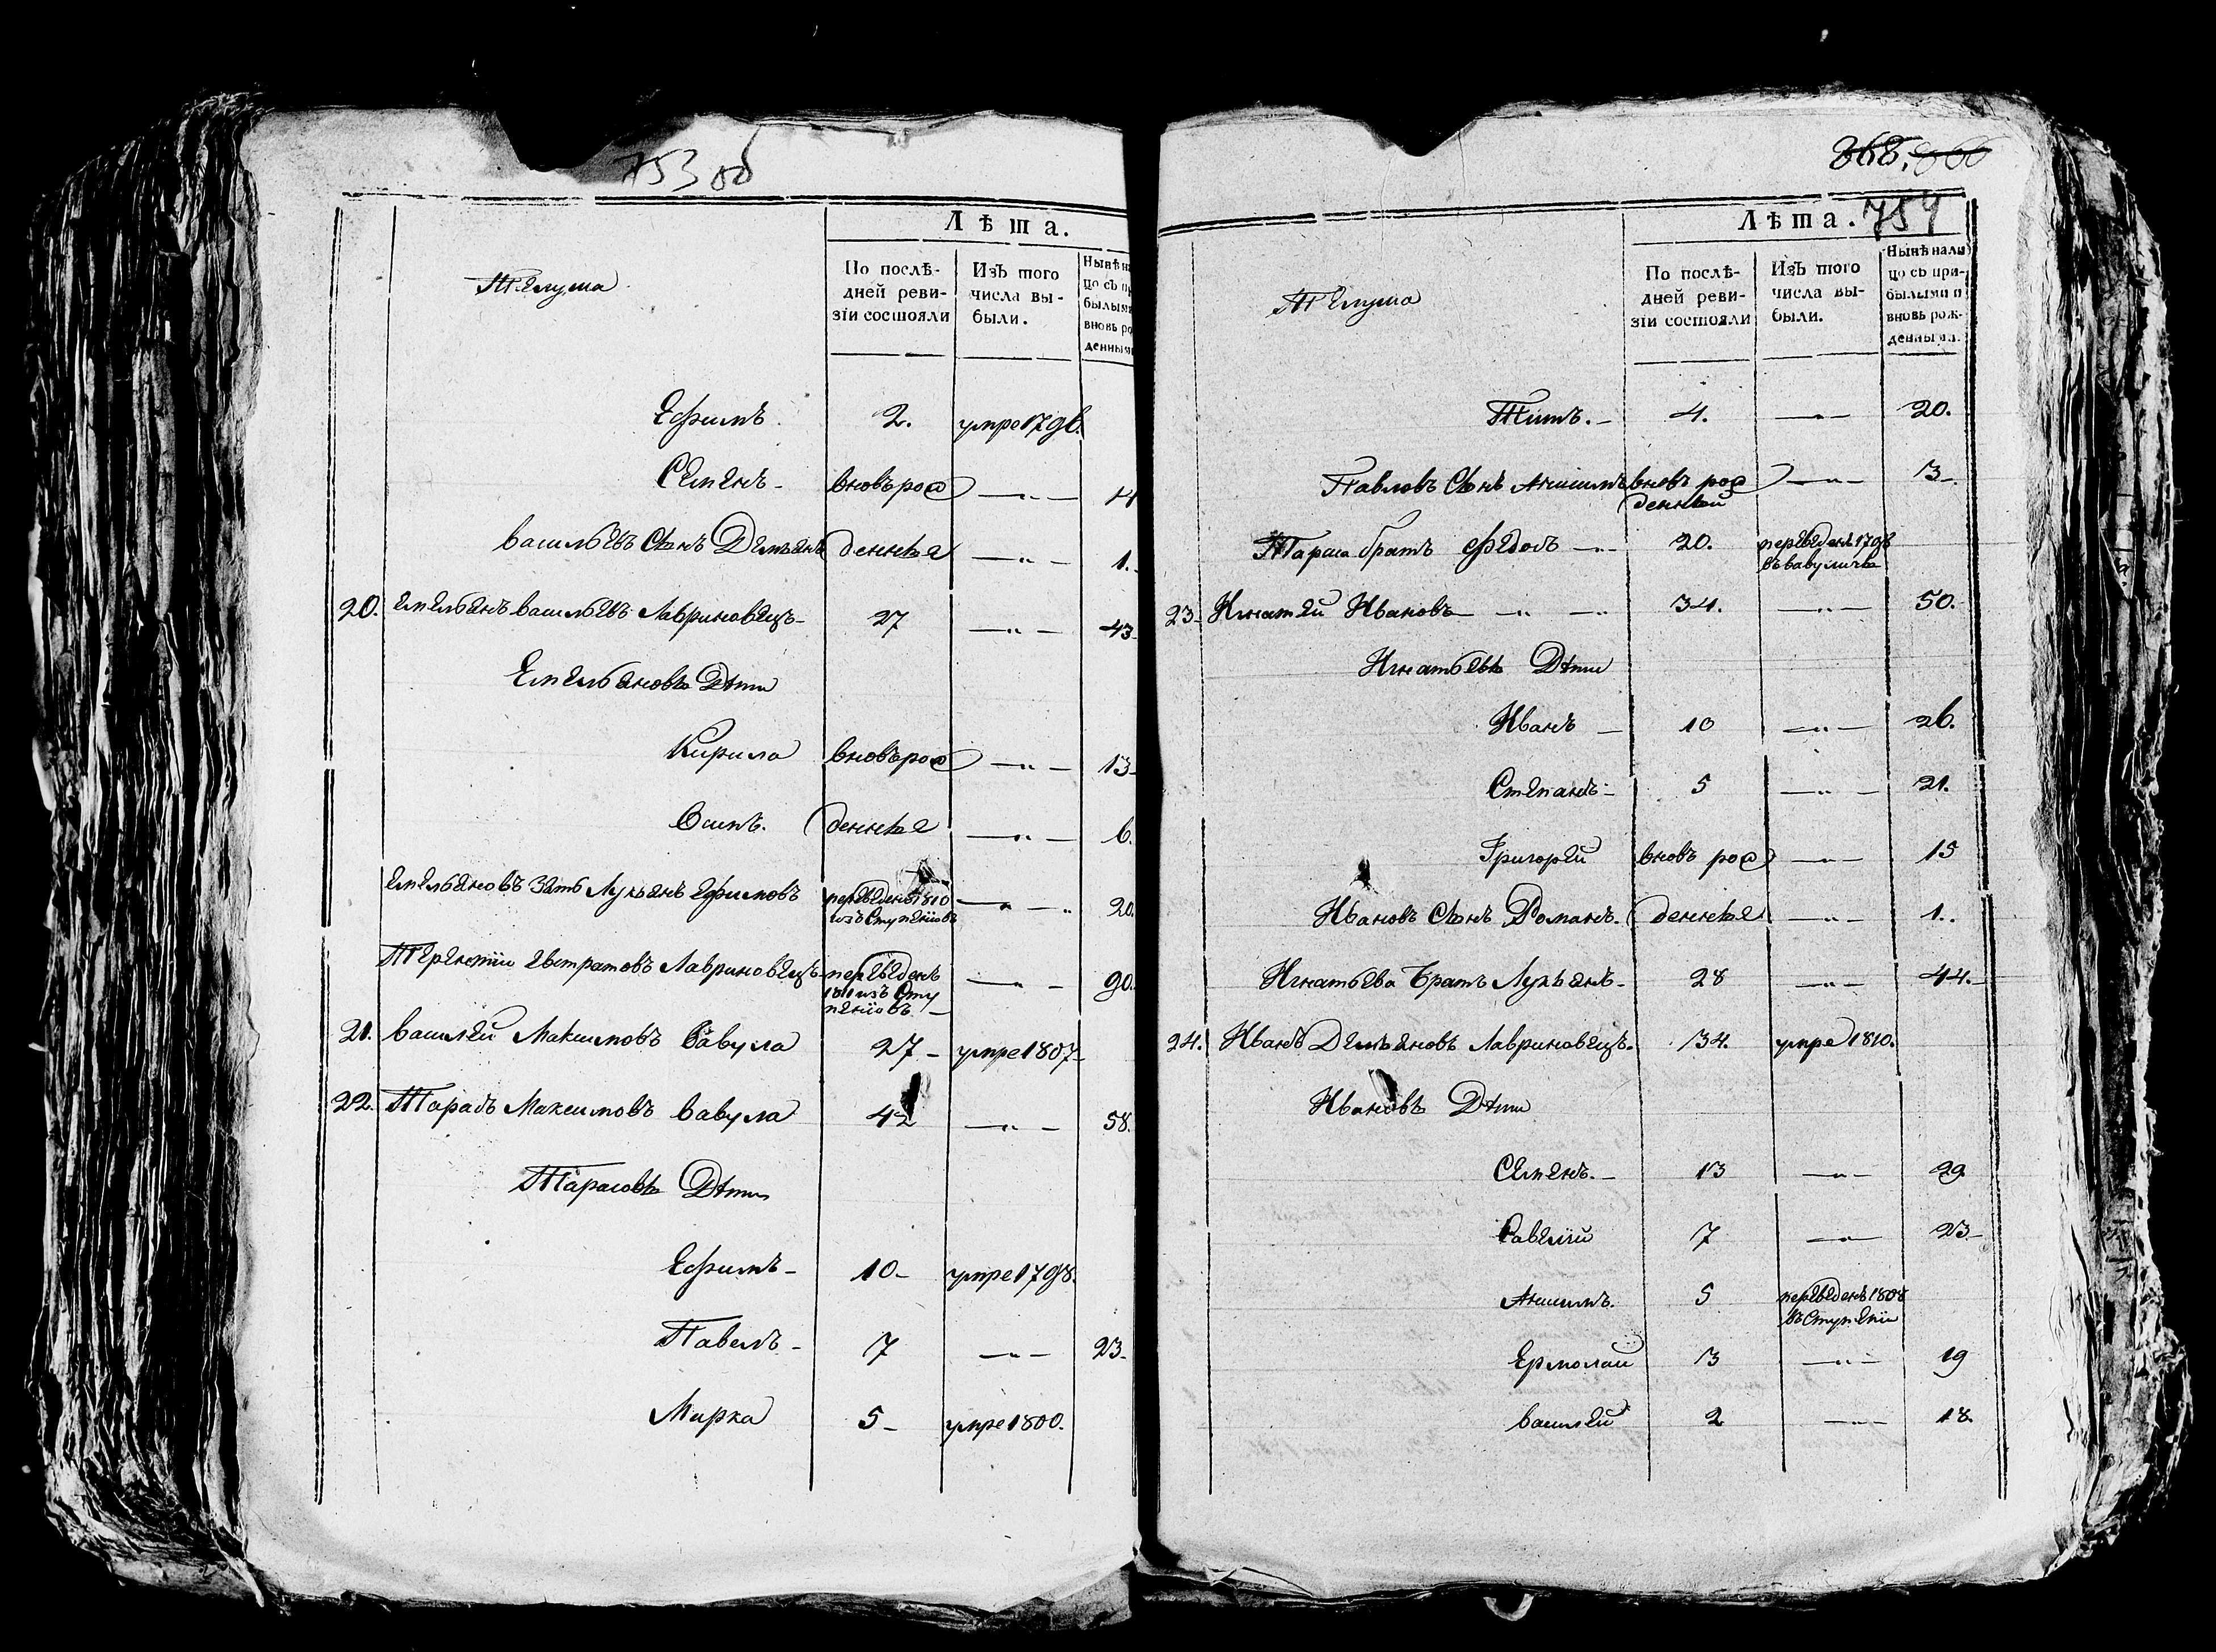 Лѣта.
Телуша
По послѣ-
дней реви-
зіи состояли
Изъ того
числа вы-
были.
Ефимъ. 2. умре 1796.
Семенъ - вновь рож — „ — 14
васильевъ Сынъ Демьянъ денные — „ — 1.
20. Емельянъ васильевъ Лавриновецъ - 27 — „ — 43
Емельяновы Дѣти
Кирила вновь рож — „ — 13
Осипъ. денные — „ — 6.
Емельяновъ Зять Лукьянъ Ефимовъ переведенъ 1810 — „ — 20.
изъ Ступеніовъ
Терентии Евстратовъ Лавриновецъ - переведенъ — „ — 90.
1811 изъ Сту
пеніовъ -
21. василей Максимовъ Вавула 27 - умре 1807 -
22. Тарасъ Максимовъ вавула 42 — „ — 58.
Тарасовы Дѣти
Ефимъ - 10 - умре 1798.
Павелъ - 7 — „ — 23 -
Мирка 5 - умре 1800.
868.
Лѣта. 759
Телуша
По послѣ-
дней реви-
зіи состояли
Изъ того
числа вы-
были.
Нынѣ нали
цо съ при-
былыми и
вновь рож-
денными.
Титъ. - 4. — „ — 20.
Павловъ Сынъ Анисимъ вновь рож — „ — 3 -
денный
Тараса братъ Федоръ — „ — 20. переведенъ 1796
въ вавуличы
23 - Игнатей Ивановъ — „ — 34. — „ — 50.
Игнатьевы Дѣти
Иванъ - 10 — „ — 26.
Степанъ - 5 — „ — 21.
Григорей вновь рож — „ — 15
Ивановъ Сынъ Романъ. денные — „ — 1.
Игнатьева Братъ Лукьянъ - 28 — „ — 44. -
24. Иванъ Демьяновъ Лавриновецъ. 34. умре 1810.
Ивановы Дѣти
Семенъ. - 13 — „ — 29
Савелій 7 — „ — 23 -
Анисимъ. 5 переведенъ 1808
въ Ступени
Ермолай 3 — „ — 19
василей 2 — „ — 18.